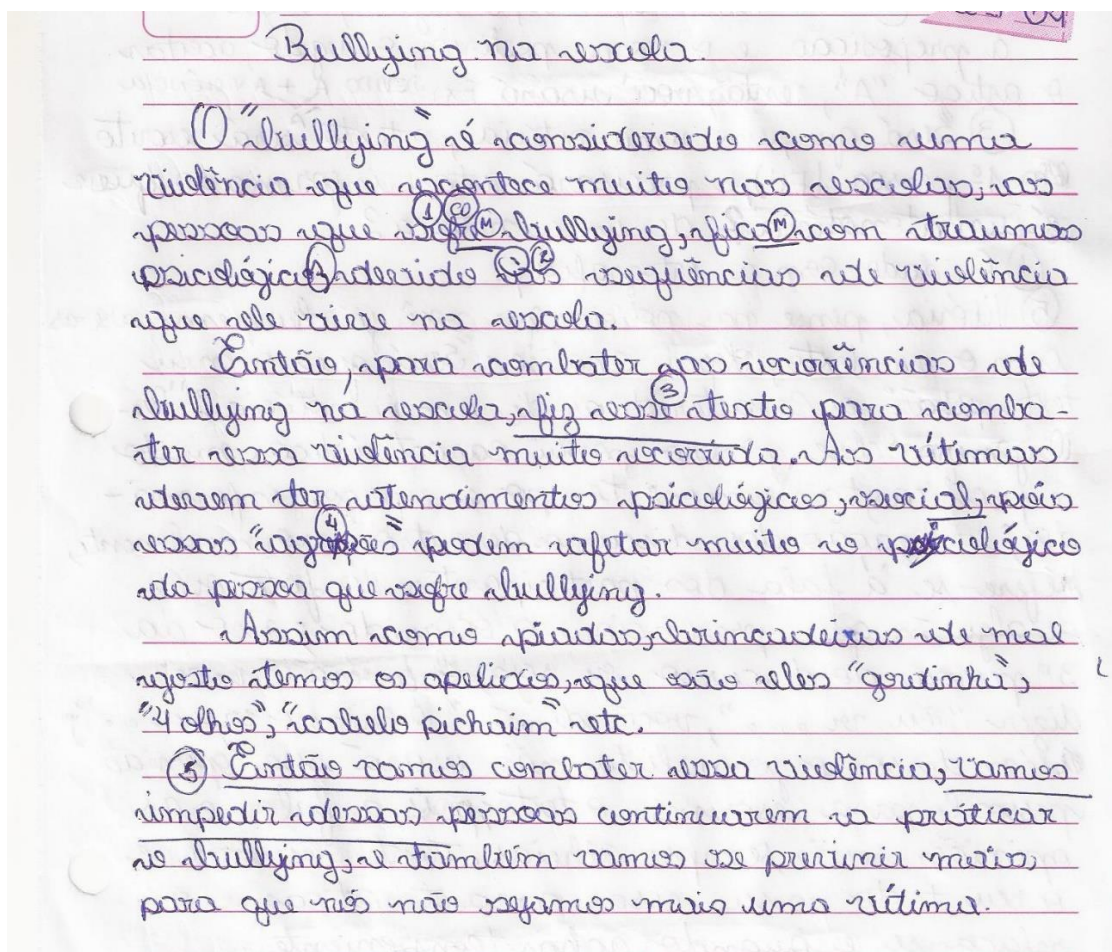 Bullying na escola.
O "bullying" é considerado como uma
violência que acontece muito nas escolas, as
pessoas que sofre bullying, fica com traumas
psicológico devido às sequências de violência
que ele vive na escola.
Então, para combater as ocorrências de
bullying na escola, fiz esse texto para comba-
ter essa violência muito ocorrida. As vítimas
devem ter atendimentos psicológicos, social, pois
essas "agressões" podem afetar muito o psicológico
da pessoa que sofre bullying.
Assim como piadas, brincadeiras de mal
gosto temos os apelidos, que são eles "gordinho",
"4 olhos", "cabelo pichaim" etc.
5 Então vamos combater essa violência, vamos
impedir dessas pessoas continuarem a praticar
o bullying, e também vamos se prevenir mais,
para que nós não sejamos mais uma vítima.